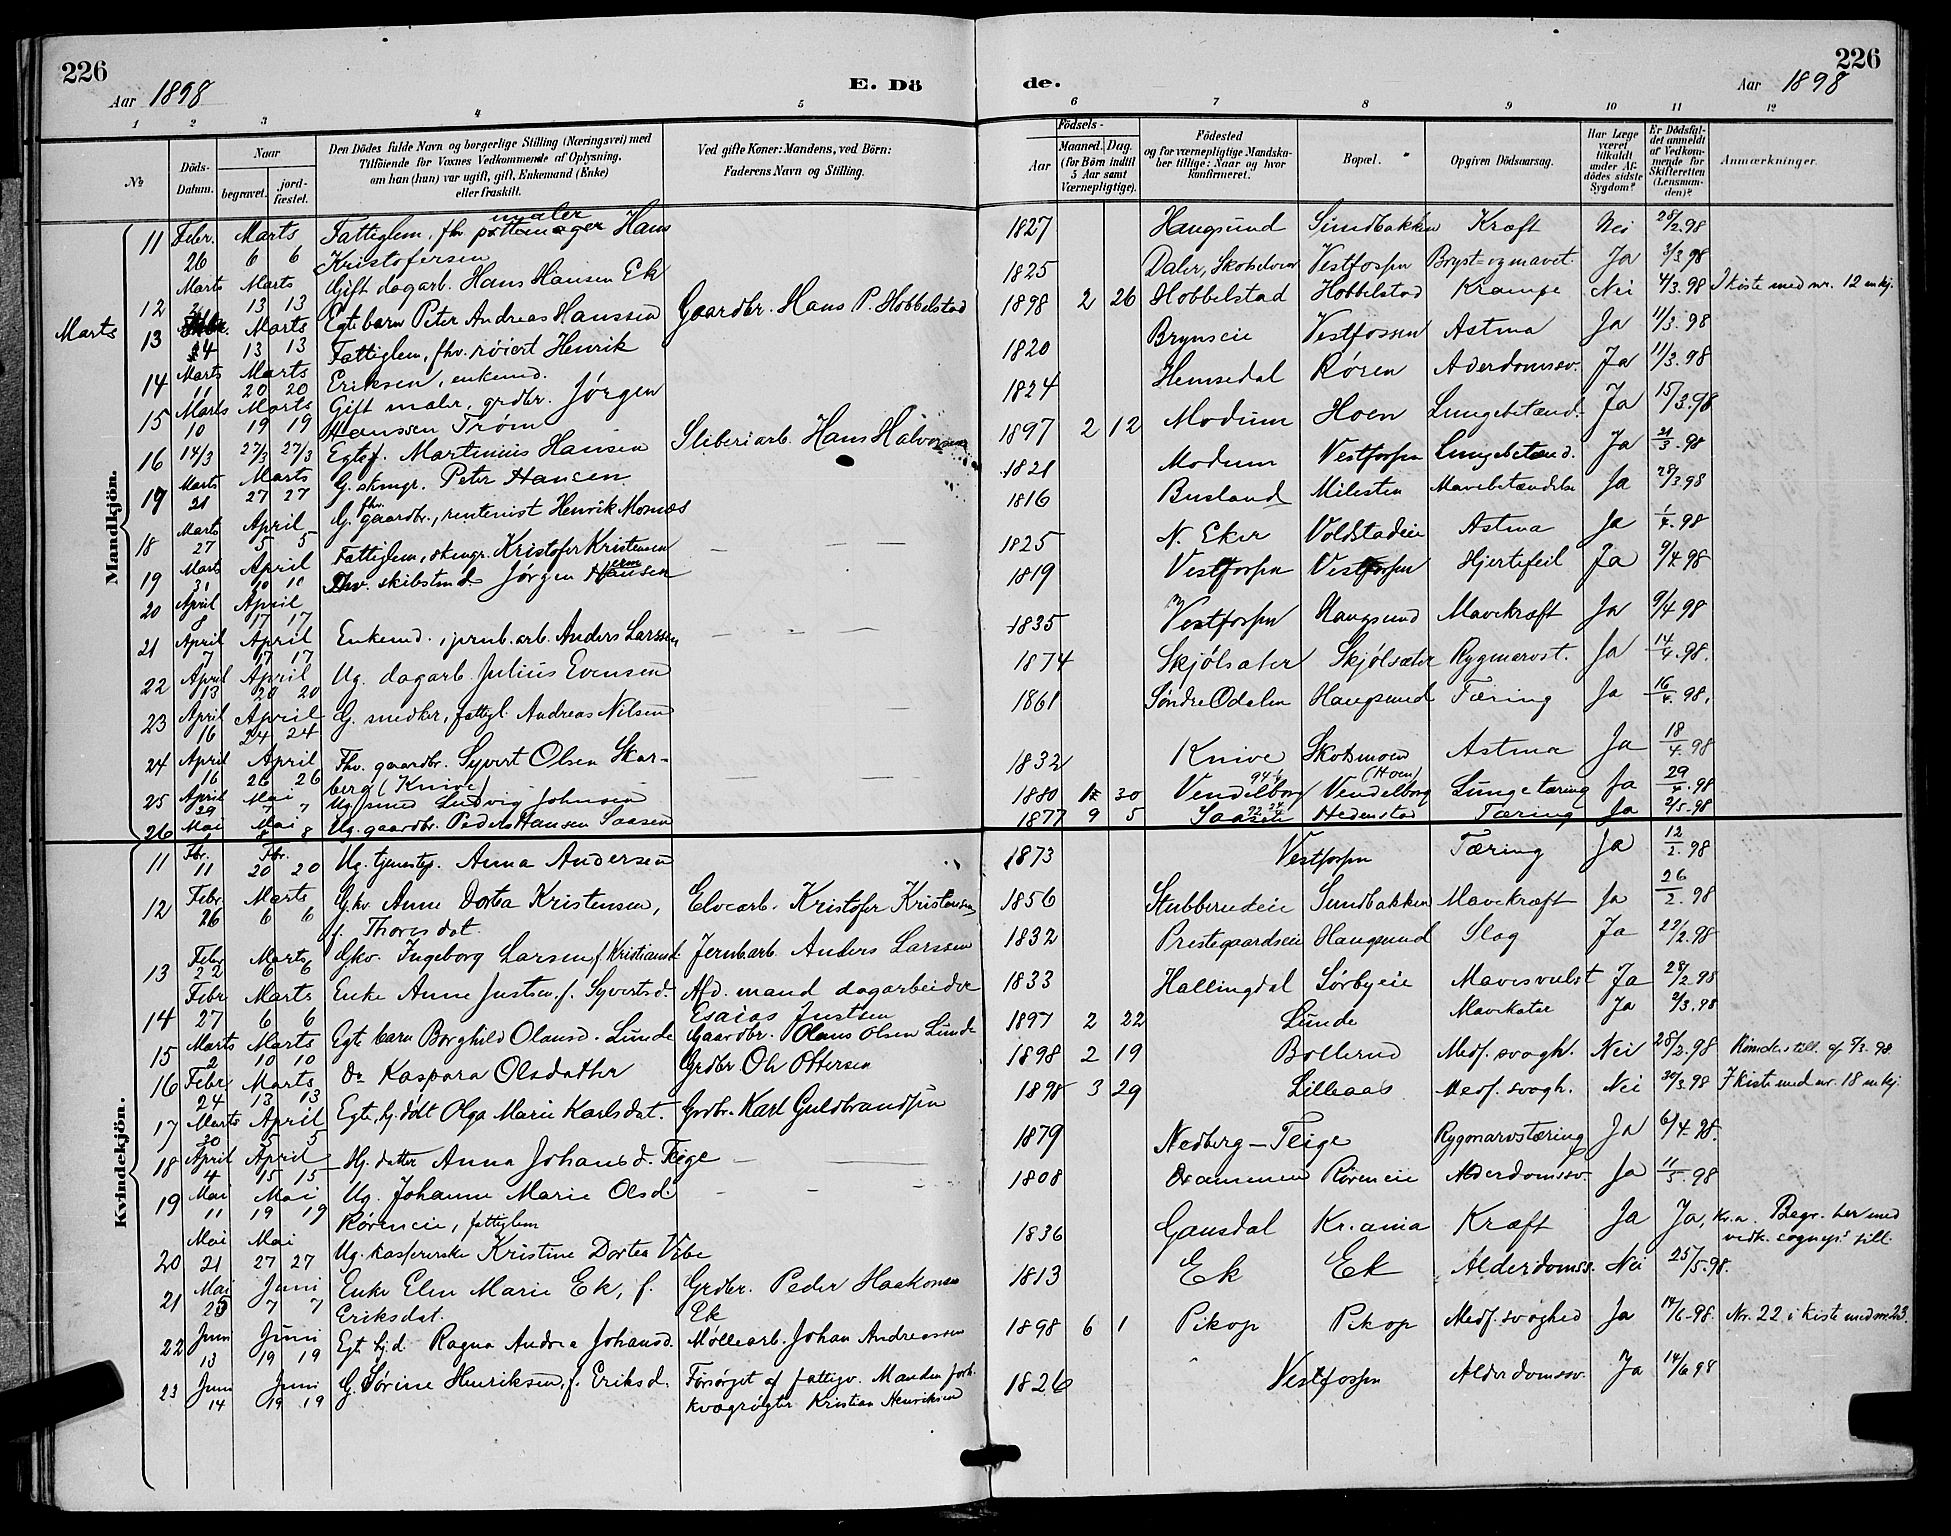 226
Aar 1898
E. Dö
de.
Aar 1898
226
1 2 3 4 5 6 7 8 9 10 11 12
No
Döds-Datum.
Naar
begravet.
jord-fæstet.
Den Dödes fulde Navn og borgerlige Stilling (Næringsvei) med
Tilföiende for Voxnes Vedkommende af Oplysning,
om han (hun) var ugift, gift, Enkemand (Enke)
eller fraskilt.
Ved gifte Koner: Mandens, ved Börn:
Faderens Navn og Stilling.
Födsels-
Aar
Maaned. Dag.
(for Börn indtil
5 Aar samt
Værnepligtige).
Födested
og for værnepligtige Mandska-
ber tillige: Naar og hvor
konfirmeret.
Bopæl.
Opgiven Dödsaarsag.
Har Læge
været
tilkaldt
under Af-
dödes sidste
Sygdom?
Er Dödsfal-
det anmeldt
af Vedkom-
mende for
Skifteretten
(Lensman-
den)?
Anmærkninger.
Mandkjön.
11 Febr. 26 Marts 6 6 Fattiglem, fhv. maler Hans
Kristofersen 1827 Haugsund Sundbakken Kræft Nei 25/2.98
Marts Marts 13 13 Gift dagarb. Hans Hansen Ek 1825 Daler, Skotselven Vestfossen Bryst= og mavet. Ja 3/3 98
12 Egte barn Peter Andreas Hanssen Gaardbr. Hans P. Hobbelstad 1898 2 26 Hobbelstad Hobbelstad Krampe Nei 4/3.98 I kiste med nr. 12 m kj.
Marts 13 Marts 13 13 Fattiglem, fhv. røiert Henrik
Eriksen, enkemd. 1820 Brynseie Vestfossen Astma Ja 11/3.98
14 Marts 11 Marts 20 20 Gift maler, grdbr. Jørgen
Hanssen Trøm 1824 Hemsedal Røren Alderdomssv. Ja 11/3.98
15 Marts 10 Marts 19 19
16 14/3 27/3 27/3 Egtef. Martinius Hansen Sliberiarb. Hans Halvorsen 1897 2 12 Modum Hoen Lungebetænd. Ja 15/3.98
19 Marts 21 Marts 27 27 G. skmgr. Peter Hansen 1821 Modum Vestfossen Lungebetænd. Ja 21/3.98
18 Marts 27 April 5 5 G. fhv. gaardbr., rentenist Henrik Mornæs 1816 Busland Milesten Mavebetændelse Ja 28/3 98
19 Marts 31 April 10 10 Fattiglem, skmgr. Kristofer Kristensen 1825 N. Eker Voldstadeie Astma Ja 1/4.98
20 April 8 April 17 17 Fhv. skibstmd. Jørgen Hansen 1819 Vestfossen Vestfossen Hjertefeil Ja 9/4.98
21 April 7 April 17 17 Enkemd. jernb.arb. Anders Larssen 1835 Vestfossen Haugsund Mavekræft Ja 9/4 98
22 April 13 April 20 20 Ug. dagarb. Julius Evensen 1874 Skjølsæter Skjølsæter Rygmarvst. Ja 14/4.98.
23 April 16 April 24 24 G. smedker, fattigl. Andreas Nilsen 1861 Søndre Odalen Haugsund Tæring Ja 16/4.98.
24 April 16 April 26 26 Fhv. gaardbr. Syvert Olsen Skar-
berg (Knive) 1832 Knive Skotsmoen (Hoen) Astma Ja 18/4.98
25 April 29 Mai 7 7 Ug. smed Ludvig Johnsen 1880 30 Vendelborg Vendelborg Lungetæring Ja 29/4.98
26 Mai Mai 8 8 Ug. gaardbr. Peder Hansen Saasen 1877 9 5 Saasen Hedenstad Tæring Ja 2/5.98
Kvindekjön.
11 Fbr. 11 Fbr. 20 20 Ug. tjenestep. Anna Andersen 1873 Vestfossen Tæring Ja 12/2.98
12 Febr 26 Marts 6 6 G.kv. Anne Dortea Kristensen,
f. Thoresdat. Elvearb. Kristofer Kristensen 1856 Stubberudeie Sundbakken Mavekræft Ja 26/2.98
13 Febr 22 Marts 6 6 Gkv. Ingeborg Larsen, f. Kristiansd. Jernb.arb. Anders Larssen 1832 Prestegaardseie Haugsund Slag Ja 22/2.98
14 Febr 27 Marts 6 6 Enke Anne Justsen f. Syvertsd. Afd. mand dagarbeider
Esaias Justsen 1833 Hallingdal Sørbyeie Mavesvulst Ja 28/2.98
15 Marts 2 Marts 10 10 Egte barn Borghild Olausd. Lunde Gaardbr. Olaus Olsen Lunde 1897 2 22 Lunde Mavekatar Ja 2/3.98
16 Febr 24 Marts 13 13 Do Kaspara Olsdatter Grdbr. Ole Ottersen 1898 2 19 Bollerud Medf. svagh. Nei 28/2.98
17 Marts 30 April 5 5 Egte, hj. døbt Olga Marie Karlsdat. Grdbr. Karl Guldbrandsen 1898 3 29 Lilleaas Medf. svagh. Nei 30/3.98 I kiste med nr. 18 m kj.
18 April 4 April 15 15 Hj. datter Anna Johansd. Teige 1879 Nedberg – Teige Rygmarvstæring Ja 6/4.98.
19 Mai 11 Mai 19 19 Ug. Johanne Marie Olsd.
Røreneie, fattiglem 1808 Drammen Røreneie Alderdomssv. Ja 11/5.98
20 Mai 21 Mai 27 27 Ug. kaspererske Kristine Dortea Vibe 1836 Gausdal Kr.ania Kræft Ja Ja, Kr.a. Begr. her med
vedk. sognepr. till.
21 Mai 25 Juni 7 7 Enke Elen Marie Ek, f.
Eriksdat. Grdbr. Peder Haakonsen
Ek 1813 Ek Ek Alderdomss. Nei 25/5.98.
22 Juni 13 Juni 19 19 Egt. hj.d. Ragna Andrea Johansd. Møllearb. Johan Andreassen 1898 6 1 Pikop Pikop Medf. svaghed Ja 14/6.98. Nr. 22 i kiste med nr 23.
23 Juni 14 Juni 19 19 G. Sørine Henriksen, f. Eriksd. Forsørget af fattigv. Manden forh.
kvægrøgter Kristian Henriksen 1826 Vestfossen Alderdomssv. Ja 14/6 98